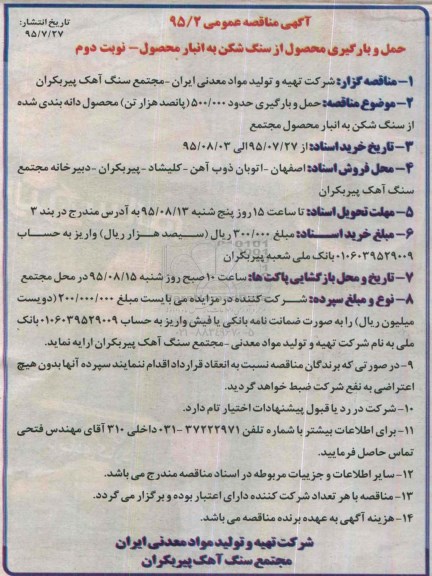 آگهی مناقصه عمومی ۹۵/۲
تاریخ انتشار:
۹۵/۷/۲۷
حمل و بارگیری محصول از سنگ شکن به انبار محصول – نوبت دوم
۱– مناقصه گزار: شرکت تهیه و تولید مواد معدنی ایران -مجتمع سنگ آهک پیربکران
۲– موضوع مناقصه: حمل و بارگیری حدود ۵۰۰/۰۰۰ (پانصد هزار تن) محصول دانه بندی شده
از سنگ شکن به انبار محصول مجتمع
۳– تاریخ خرید اسناد: از ۹۵/۰۷/۲۷ الی ۹۵/۰۸/۰۳
۴– محل فروش اسناد: اصفهان - اتوبان ذوب آهن - کلیشاد - پیربکران -دبیرخانه مجتمع
سنگ آهک پیربکران
۵– مهلت تحویل اسناد: تا ساعت ۱۵ روز پنج شنبه ۹۵/۰۸/۱۳ به آدرس مندرج در بند ۳
۶– مبلغ خرید اسناد: مبلغ ۳۰۰/۰۰۰ ریال (سیصد هزار ریال) واریز به حساب
۰۱۰۶۰۳۹۵۲۹۰۰۹ بانک ملی شعبه پیربکران
۷– تاریخ و محل بازگشایی پاکت ها: ساعت ۱۰ صبح روز شنبه ۹۵/۰۸/۱۵ در محل مجتمع
۸– نوع و مبلغ سپرده: شرکت کننده در مزایده می بایست مبلغ ۲۰۰/۰۰۰/۰۰۰ (دویست
میلیون ریال) را به صورت ضمانت نامه بانکی یا فیش واریز به حساب ۰۱۰۶۰۳۹۵۲۹۰۰۹ بانک
ملی به نام شرکت تهیه و تولید مواد معدنی -مجتمع سنگ آهک پیربکران ارایه نماید.
۹- در صورتی که برندگان مناقصه نسبت به انعقاد قرارداد اقدام ننمایند سپرده آنها بدون هیچ
اعتراضی به نفع شرکت ضبط خواهد گردید.
۱۰- شرکت در رد یا قبول پیشنهادات اختیار تام دارد.
۱۱- برای اطلاعات بیشتر با شماره تلفن ۳۷۲۲۲۹۷۱-۰۳۱ داخلی ۳۱۰ آقای مهندس فتحی
تماس حاصل فرمایید.
۱۲- سایر اطلاعات و جزییات مربوطه در اسناد مناقصه مندرج می باشد.
۱۳- مناقصه با هر تعداد شرکت کننده دارای اعتبار بوده و برگزار می گردد.
۱۴- هزینه آگهی به عهده برنده مناقصه می باشد.
شرکت تهیه و تولید مواد معدنی ایران
مجتمع سنگ آهک پیربکران